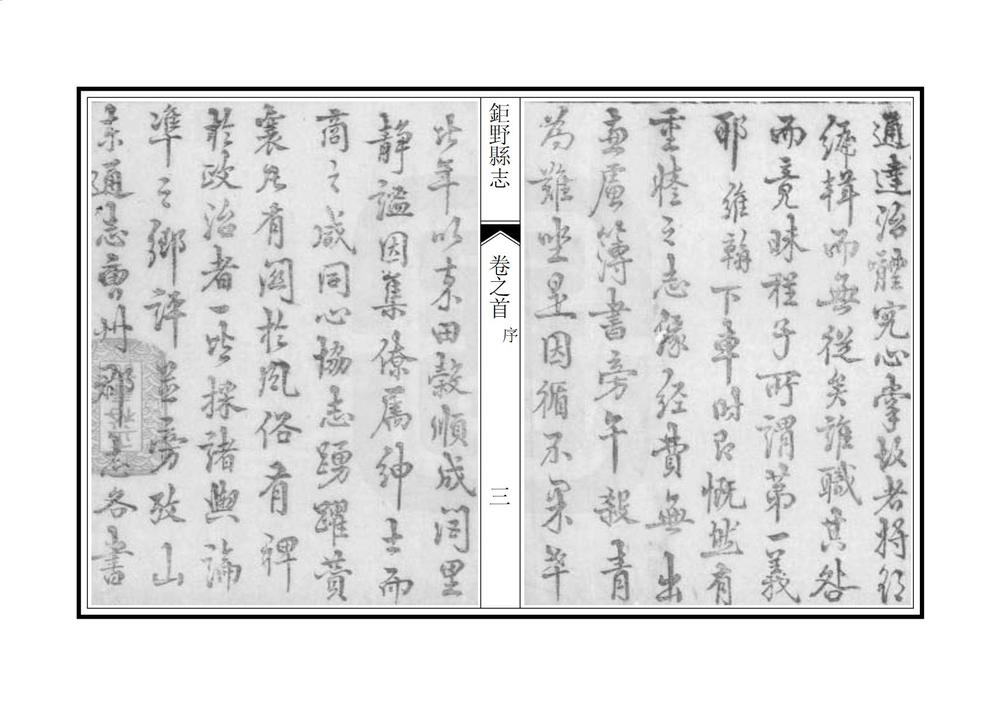 通達治體究心掌故者將欲
編輯而無從矣誰職其咎
而竟昧程子所謂第一義
耶維翰下車時即慨然有
重修之志緣經費無出
兼慮簿書旁午殺青
為難坐是因循不果率
鉅野縣志
卷之首
序
三
比年以來田穀順成閭里
靜謐因集僚屬紳士而
商之咸同心協志踴躍贊
襄凡有關於風俗有裨
於政治者一一採諸輿論
準之鄉評並旁攷山
東通志曹州郡志各書